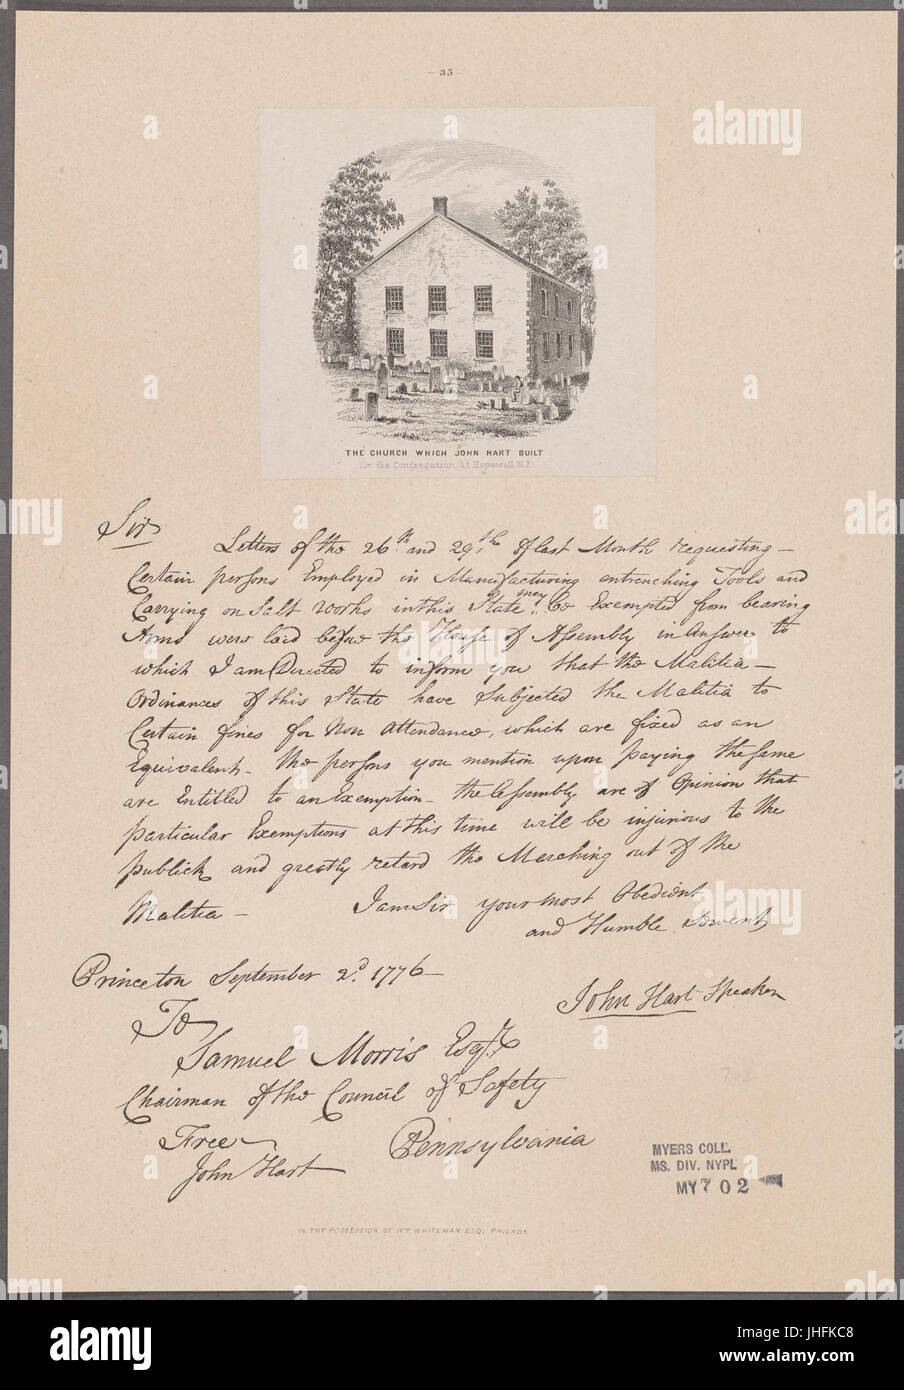 - 35 -
THE CHURCH WHICH JOHN HART BUILT
for the Congregation at Hopewell N.J.
Sir
Letters of the 26th and 29th of last Month requesting -
Certain persons Employed in Manufacturing entrenching Tools and
may
Carrying on Salt Works in this State be Exempted from bearing
Arms were laid before the House of Assembly in Answer to
which I am Directed to inform you that the Malitia -
Ordinances of this State have Subjected the Malitia to
Certain fines for Non Attendance, which are fixed as an
Equivalent - the persons you mention upon paying the same
are Entitled to an Exemption - the Assembly are of Opinion that
particular Exemptions at this time will be injurious to the
publick and greatly retard the Marching out of the
Malitia - I am Sir your most Obedient
and Humble Servent
Princeton September 2d. 1776 -
John Hart Speaker
To
Samuel Morris Esqr.
Chairman of the Council of Safety
Free Pennsylvania
John Hart
MYERS COLL.
MS. DIV. NYPL
MY 702
IN THE POSSESSION OF Wm WHITEMAN ESQ. PHILADa
alamy
alamy
alamy
a
a
a
a
a
a
alamy stock photo
Image ID: JHFKC8
www.alamy.com